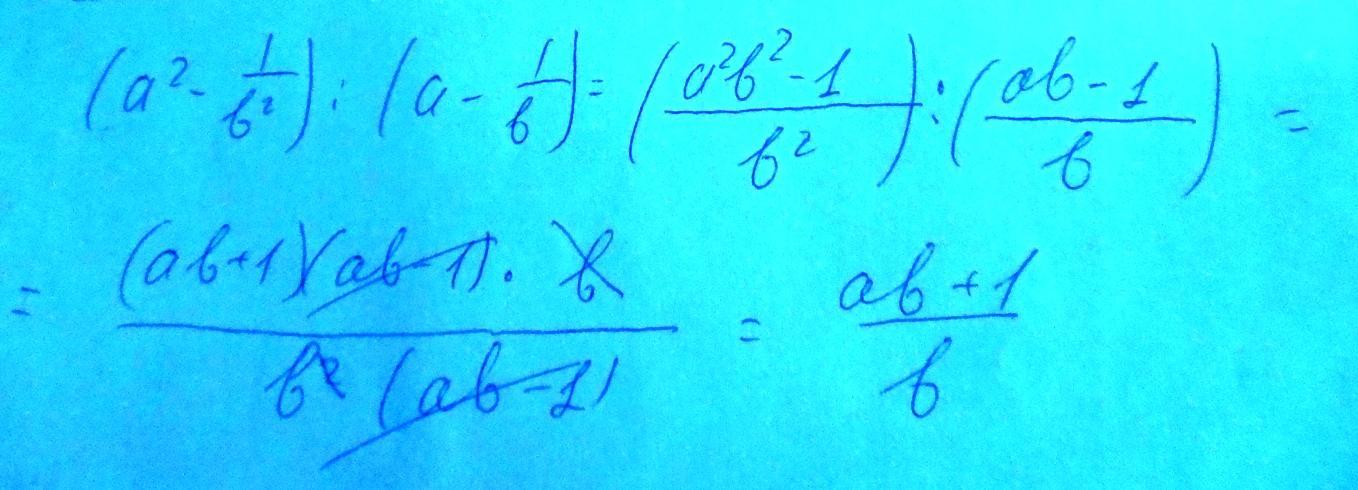 (a² - 1/b²) : (a - 1/b) = ((a²b² - 1)/b²) : ((ab - 1)/b) =
= ((ab+1)(ab-1) · b)/(b² (ab-1)) = (ab+1)/b